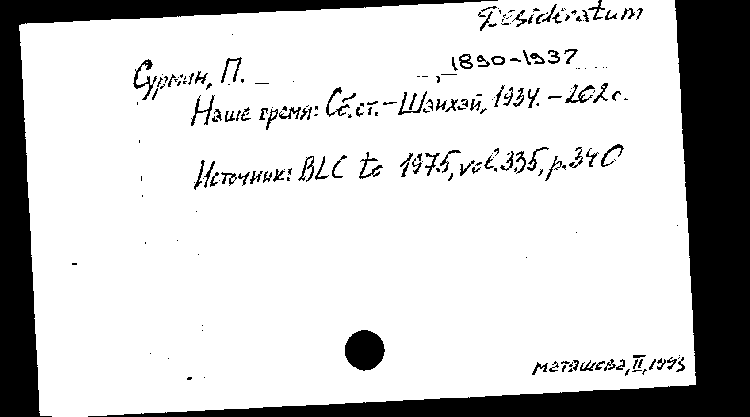 Desideratum
Сурмин, П. , 1890-1937
Наше время: Сб. ст. - Шанхай, 1934. - 202 с.
Источник: BLC to 1975, vol. 335, p. 340
Маташова, II, 1993